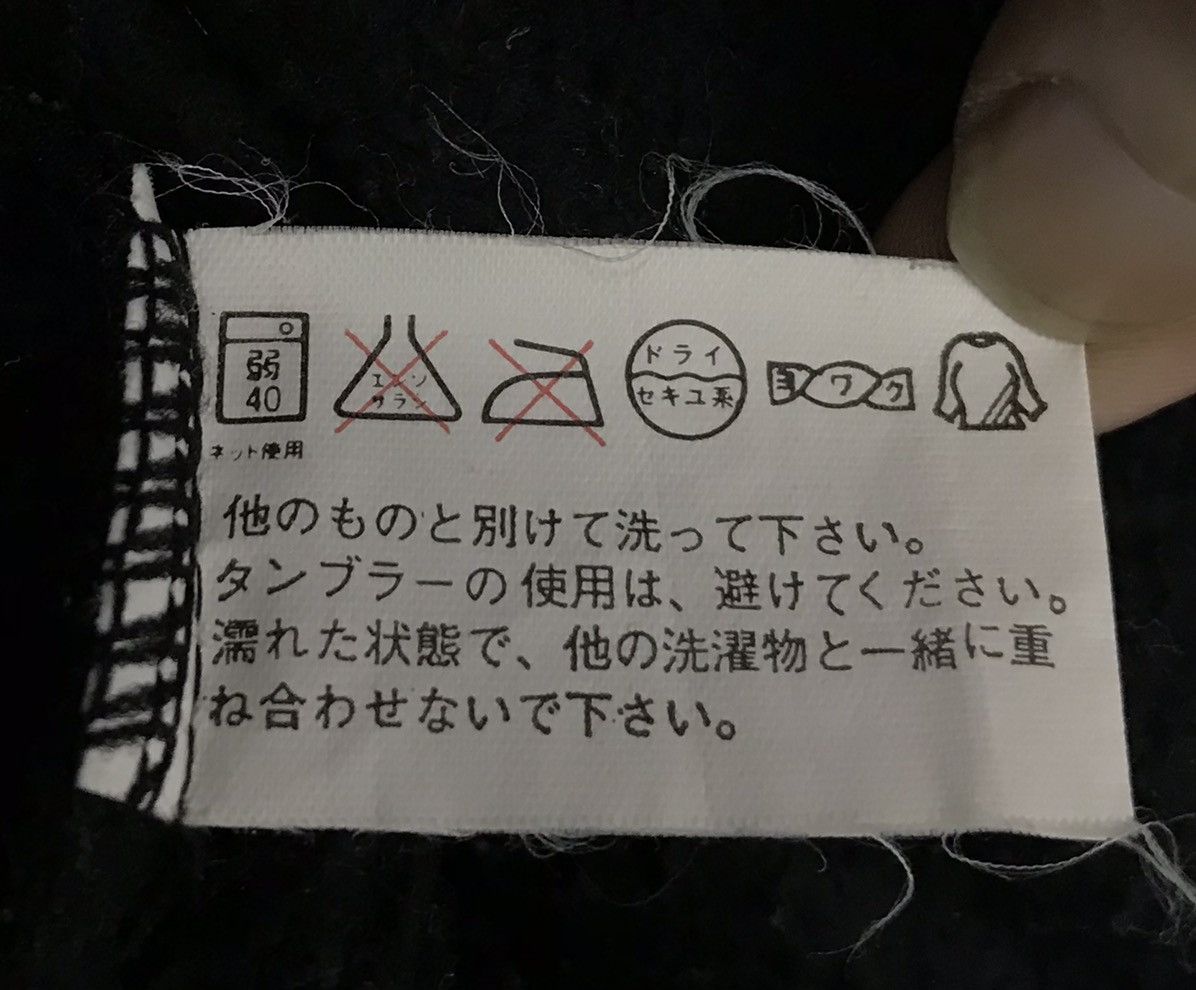 弱
40
ネット使用
エンソ
サラシ
ドライ
セキユ系
ヨワク
他のものと別けて洗って下さい。
タンブラーの使用は、避けてください。
濡れた状態で、他の洗濯物と一緒に重
ね合わせないで下さい。